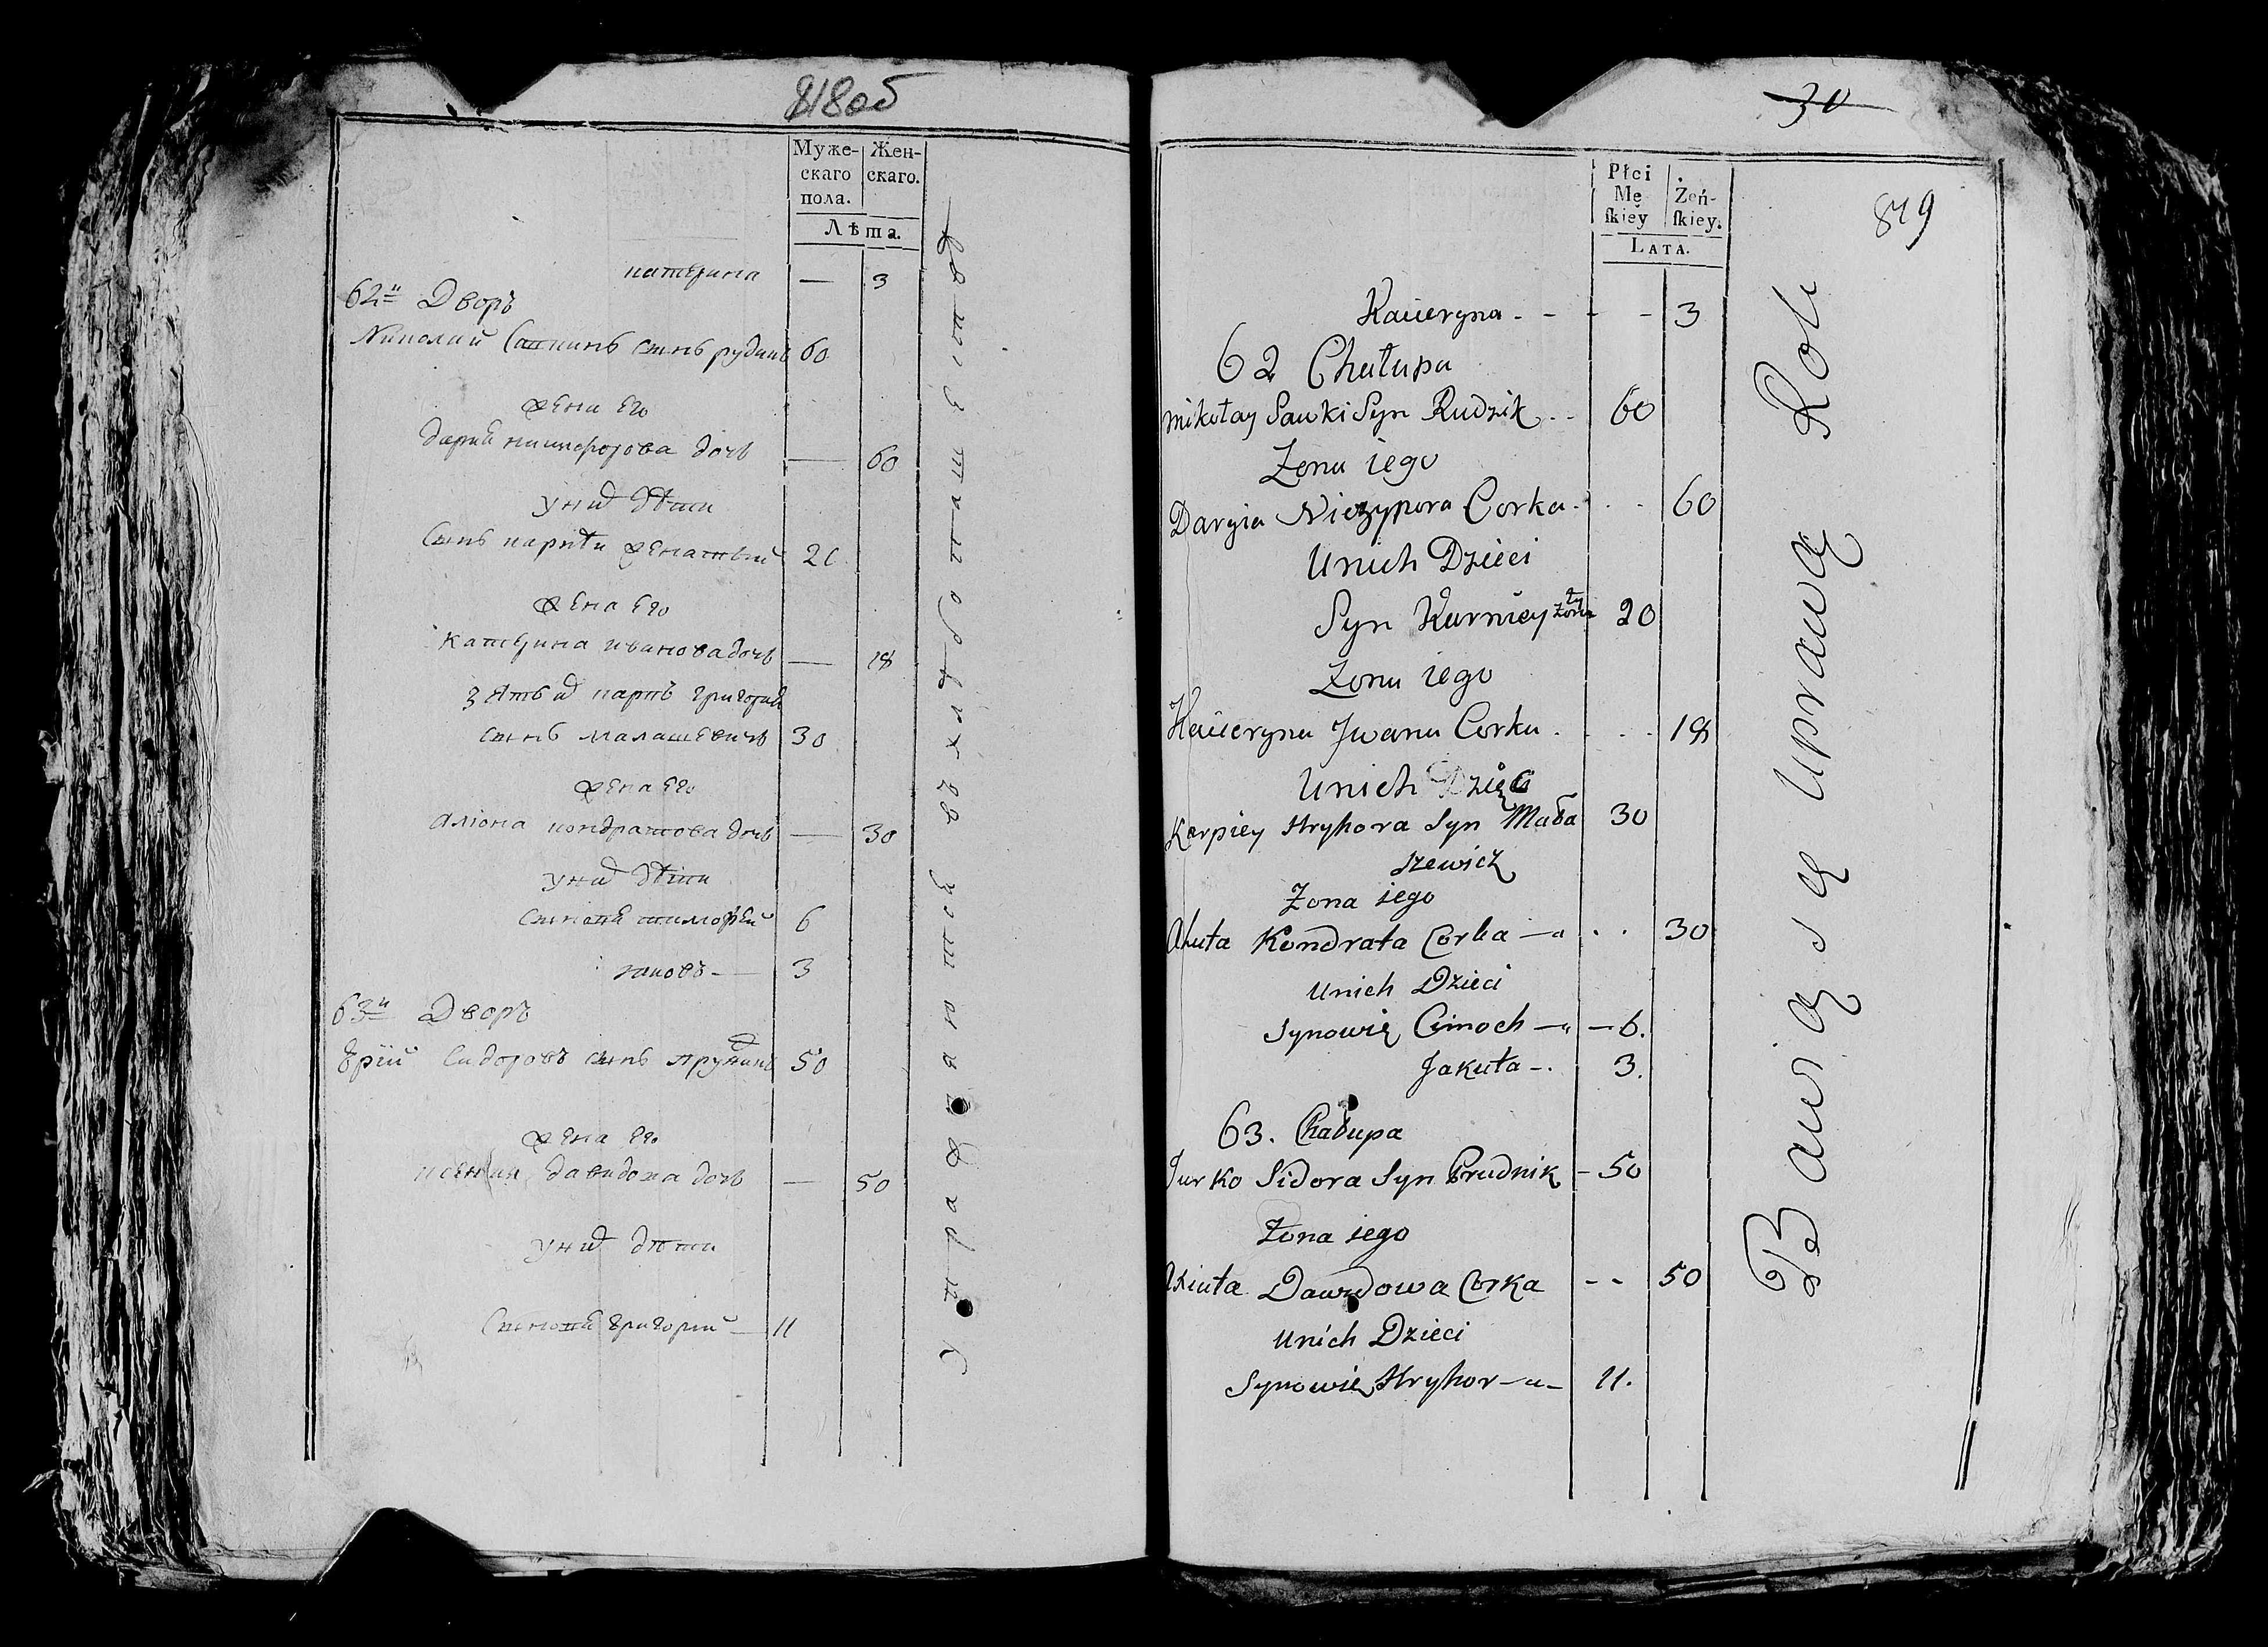 818об
Муже-
скаго
пола.
Жен-
скаго.
Лѣта.
катерина — 3
62й Дворъ
Николай Савкинъ сынъ рудикъ 60
жена его
дарья никифорова дочь — 60
у них дѣти
Сынъ карнѣй женатый 20
жена его
катерина иванова дочь — 18
зять их карпъ григорьевъ
сынъ малашевичъ 30
жена его
алiона кондратова дочь — 30
у них дѣти
Сыновя тимофѣй 6
яковъ — 3
63й Дворъ
Юрiй Сидоровъ сынъ прудникъ 50
жена его
давидова дочь — 50
у них дѣти
Сыновя григорiй — 11
30
819
Płci
Mę
ſkiey
Żeń-
ſkiey.
LATA.
Kacieryna - - - - 3
62 Chałupa
Mikołay Sawki Syn Rudzik - - 60
Zona iego
Daryia Niczypora Corka - - - 60
Unich Dzieci
Syn Karniey żonaty 20
Zona iego
Kacieryna Jwana Corka - - - 18
Unich Zięć
Karpiey Hryhora Syn Mała 30
szewicz
Zona iego
Kondrata Corka — - - 30
Unich Dzieci
Synowie Cimoch — — 6.
Jakuta -. 3.
63. Chałupa
Jurko Sidora Syn Prudnik - 50
Zona iego
Axiuta Dawidowa Corka - - 50
Unich Dzieci
Synowie Hryhor — 11.
Bawią się uprawą Roli